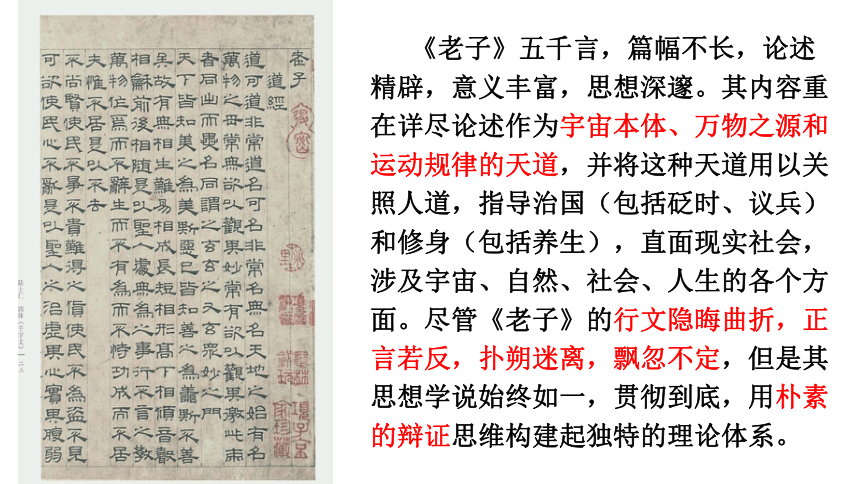 老子
道經
道可道非常道名可名非常名無名天地之始有名
萬物之母常無欲以觀其妙常有欲以觀其徼此兩
者同出而異名同謂之玄玄之又玄眾妙之門
天下皆知美之為美斯惡已皆知善之為善斯不善
矣故有無相生難易相成長短相形高下相傾音聲
相龢前後相随是以聖人處無為之事行不言之教
萬物作焉而不辭生而不有為而不恃功成而不居
夫惟不居是以不去
不尚賢使民不爭不貴難得之貨使民不為盜不見
可欲使民心不亂是以聖人之治虛其心實其腹弱
《老子》五千言，篇幅不长，论述
精辟，意义丰富，思想深邃。其内容重
在详尽论述作为宇宙本体、万物之源和
运动规律的天道，并将这种天道用以关
照人道，指导治国（包括砭时、议兵）
和修身（包括养生），直面现实社会，
涉及宇宙、自然、社会、人生的各个方
面。尽管《老子》的行文隐晦曲折，正
言若反，扑朔迷离，飘忽不定，但是其
思想学说始终如一，贯彻到底，用朴素
的辩证思维构建起独特的理论体系。